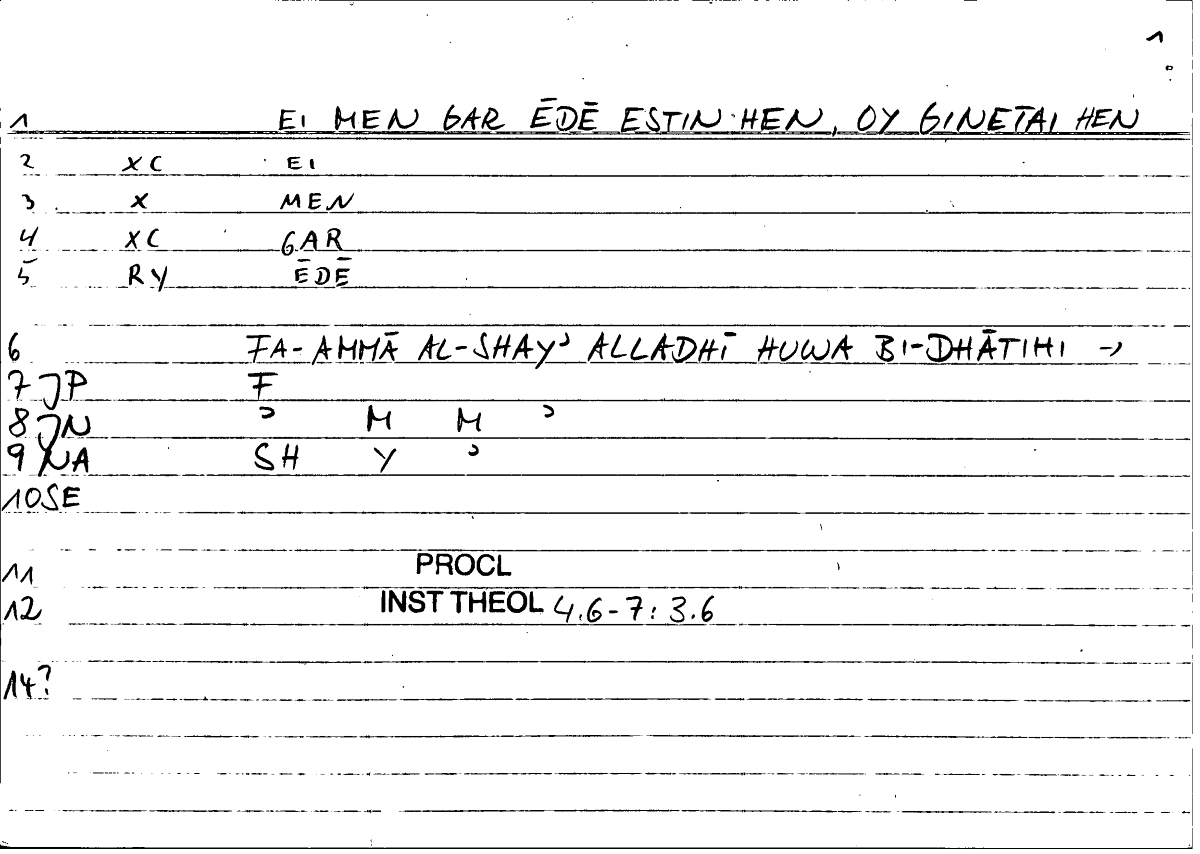 1
1 EI MEN GAR ĒDĒ ESTIN HEN, OY GINETAI HEN
2 XC EI
3 X MEN
4 XC GAR
5 RY ĒDĒ
6 FA-AMMĀ AL-SHAYʾ ALLADHĪ HUWA BI-DHĀTIHI →
7 JP F
8 JN ʾ M M ʾ
9 NA SH Y ʾ
10 SE
11 PROCL
12 INST THEOL 4.6-7: 3.6
14?